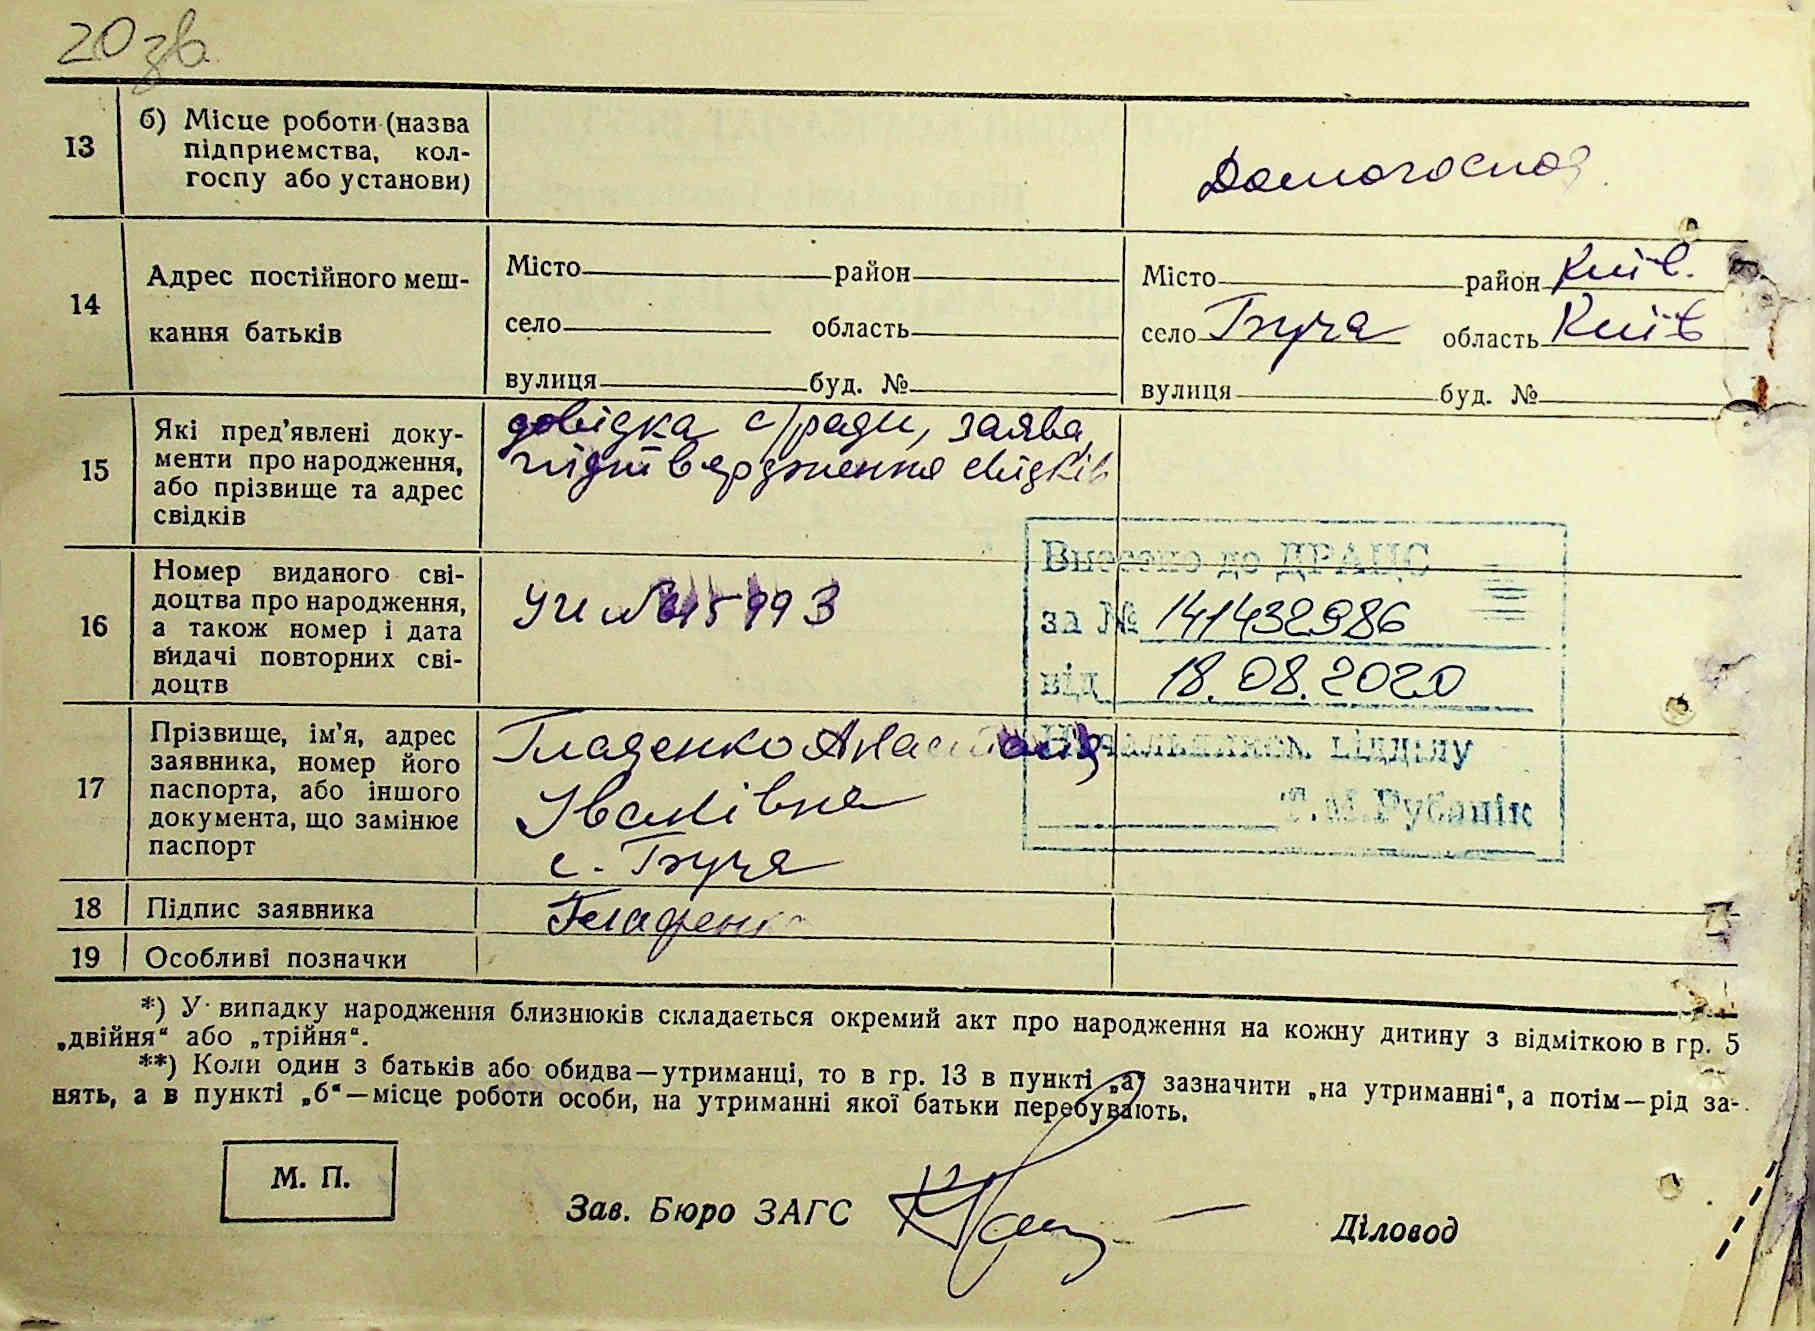 20 зв.
13
б) Місце роботи (назва
підприємства, кол-
госпу або установи)
Домогоспод.
14
Адрес постійного меш-
кання батьків
Місто район
село область
вулиця буд. №
Місто район Київ.
село Буча область Київ
вулиця буд. №
15
Які пред'явлені доку-
менти про народження,
або прізвище та адрес
свідків
довідка с/ради, заява,
підтвердження свідків
16
Номер виданого сві-
доцтва про народження,
а також номер і дата
видачі повторних сві-
доцтв
УИ №
Внесено до ДРАЦС
за № 141432986
від 18.08.2020
Начальником відділу
Т.М.Рубанік
17
Прізвище, ім'я, адрес
заявника, номер його
паспорта, або іншого
документа, що замінює
паспорт
Гладенко Анастасія
Іванівна
с. Буча
18
Підпис заявника
Гладенко
19
Особливі позначки
*) У випадку народження близнюків складається окремий акт про народження на кожну дитину з відміткою в гр. 5
„двійня“ або „трійня“.
**) Коли один з батьків або обидва—утриманці, то в гр. 13 в пункті „а“ зазначити „на утриманні“, а потім—рід за-
нять, а в пункті „б“—місце роботи особи, на утриманні якої батьки перебувають.
М. П.
Зав. Бюро ЗАГС
Діловод